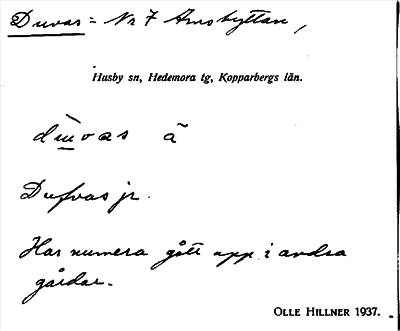 Duvas = Nr 7 Arnsbyttan,
Husby sn, Hedemora tg, Kopparbergs län.
Dufvas jr.
Har numera gått upp i andra
gårdar.
OLLE HILLNER 1937.